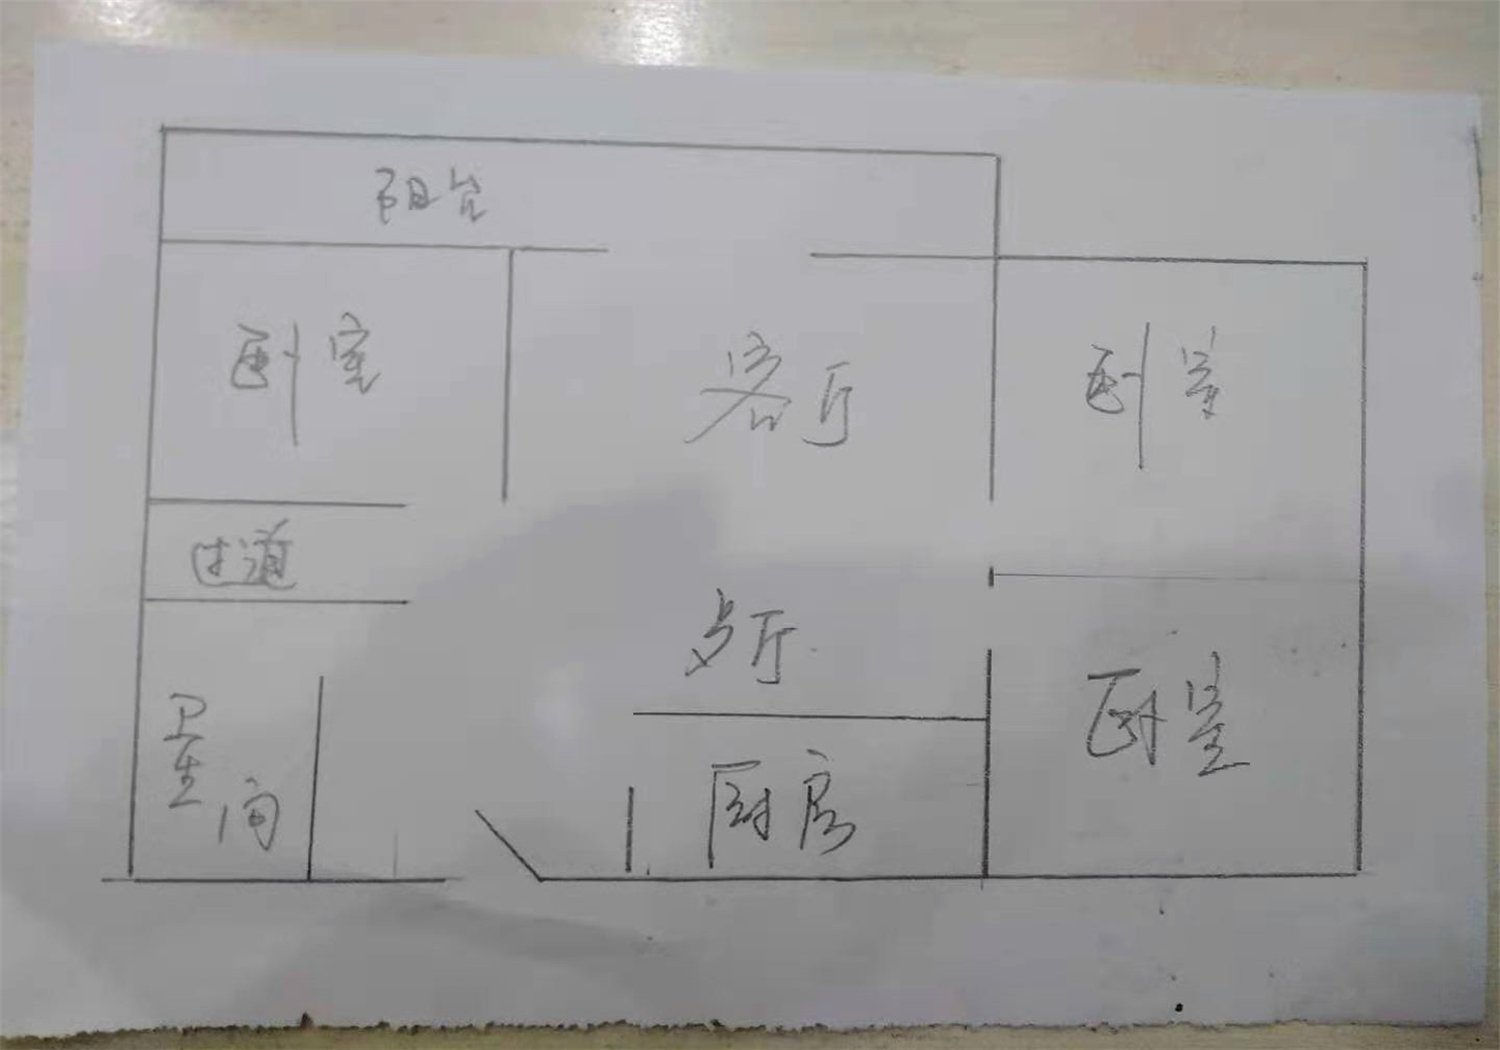 阳台
卧室
客厅
卧室
过道
歺厅
卧室
卫生间
厨房